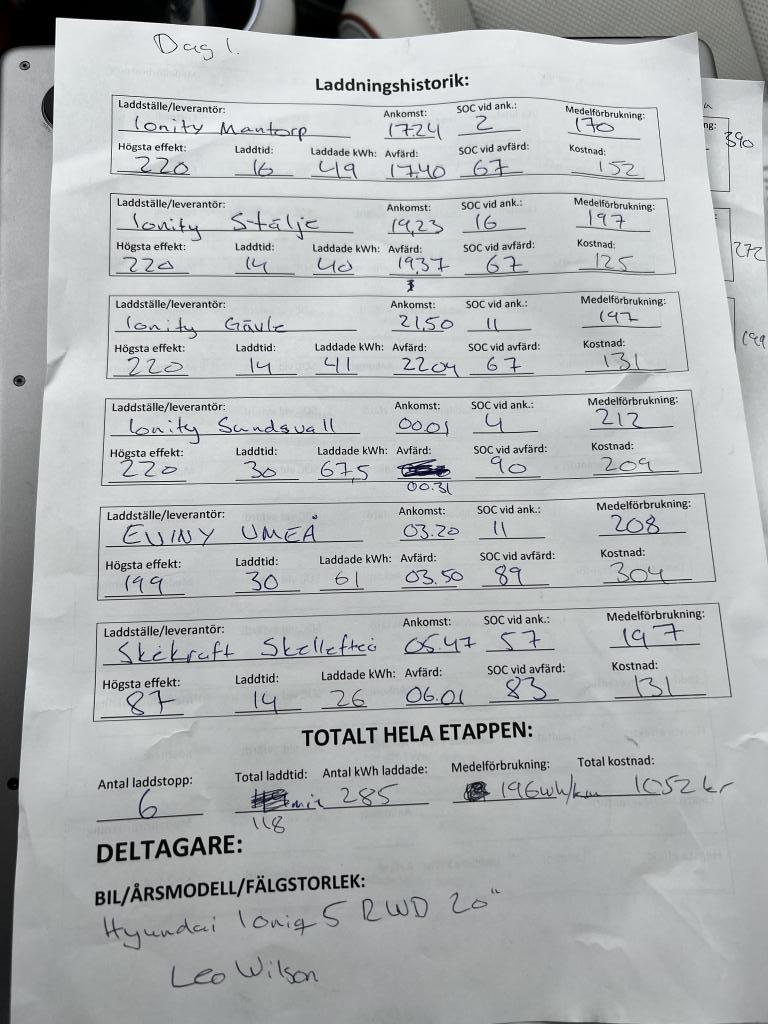 Dag 1.
Laddningshistorik:
Laddställe/leverantör: Ankomst: SOC vid ank.: Medelförbrukning:
Ionity Mantorp 17.24 2 170
Högsta effekt: Laddtid: Laddade kWh: Avfärd: SOC vid avfärd: Kostnad:
220 16 49 17.40 67 152
Laddställe/leverantör: Ankomst: SOC vid ank.: Medelförbrukning:
Ionity 19,23 16 197
Högsta effekt: Laddtid: Laddade kWh: Avfärd: SOC vid avfärd: Kostnad:
220 14 40 19.37 67 125
Laddställe/leverantör: Ankomst: SOC vid ank.: Medelförbrukning:
Ionity Gävle 21,50 11 197
Högsta effekt: Laddtid: Laddade kWh: Avfärd: SOC vid avfärd: Kostnad:
220 14 41 2204 67 131
Laddställe/leverantör: Ankomst: SOC vid ank.: Medelförbrukning:
Ionity Sundsvall 00.01 4 212
Högsta effekt: Laddtid: Laddade kWh: Avfärd: SOC vid avfärd: Kostnad:
220 30 67,5 90 209
00.31
Laddställe/leverantör: Ankomst: SOC vid ank.: Medelförbrukning:
EVINY UMEÅ 03.20 11 208
Högsta effekt: Laddtid: Laddade kWh: Avfärd: SOC vid avfärd: Kostnad:
199 30 61 03.50 89 304
Laddställe/leverantör: Ankomst: SOC vid ank.: Medelförbrukning:
Skekraft Skellefteå 05.47 57 197
Högsta effekt: Laddtid: Laddade kWh: Avfärd: SOC vid avfärd: Kostnad:
87 14 26 06.01 83 131
TOTALT HELA ETAPPEN:
Antal laddstopp: Total laddtid: Antal kWh laddade: Medelförbrukning: Total kostnad:
6 min 285 196wh/km 1052 kr
118
DELTAGARE:
BIL/ÅRSMODELL/FÄLGSTORLEK:
Hyundai Ioniq 5 RWD 20"
Leo Wilson
ng:
390
272